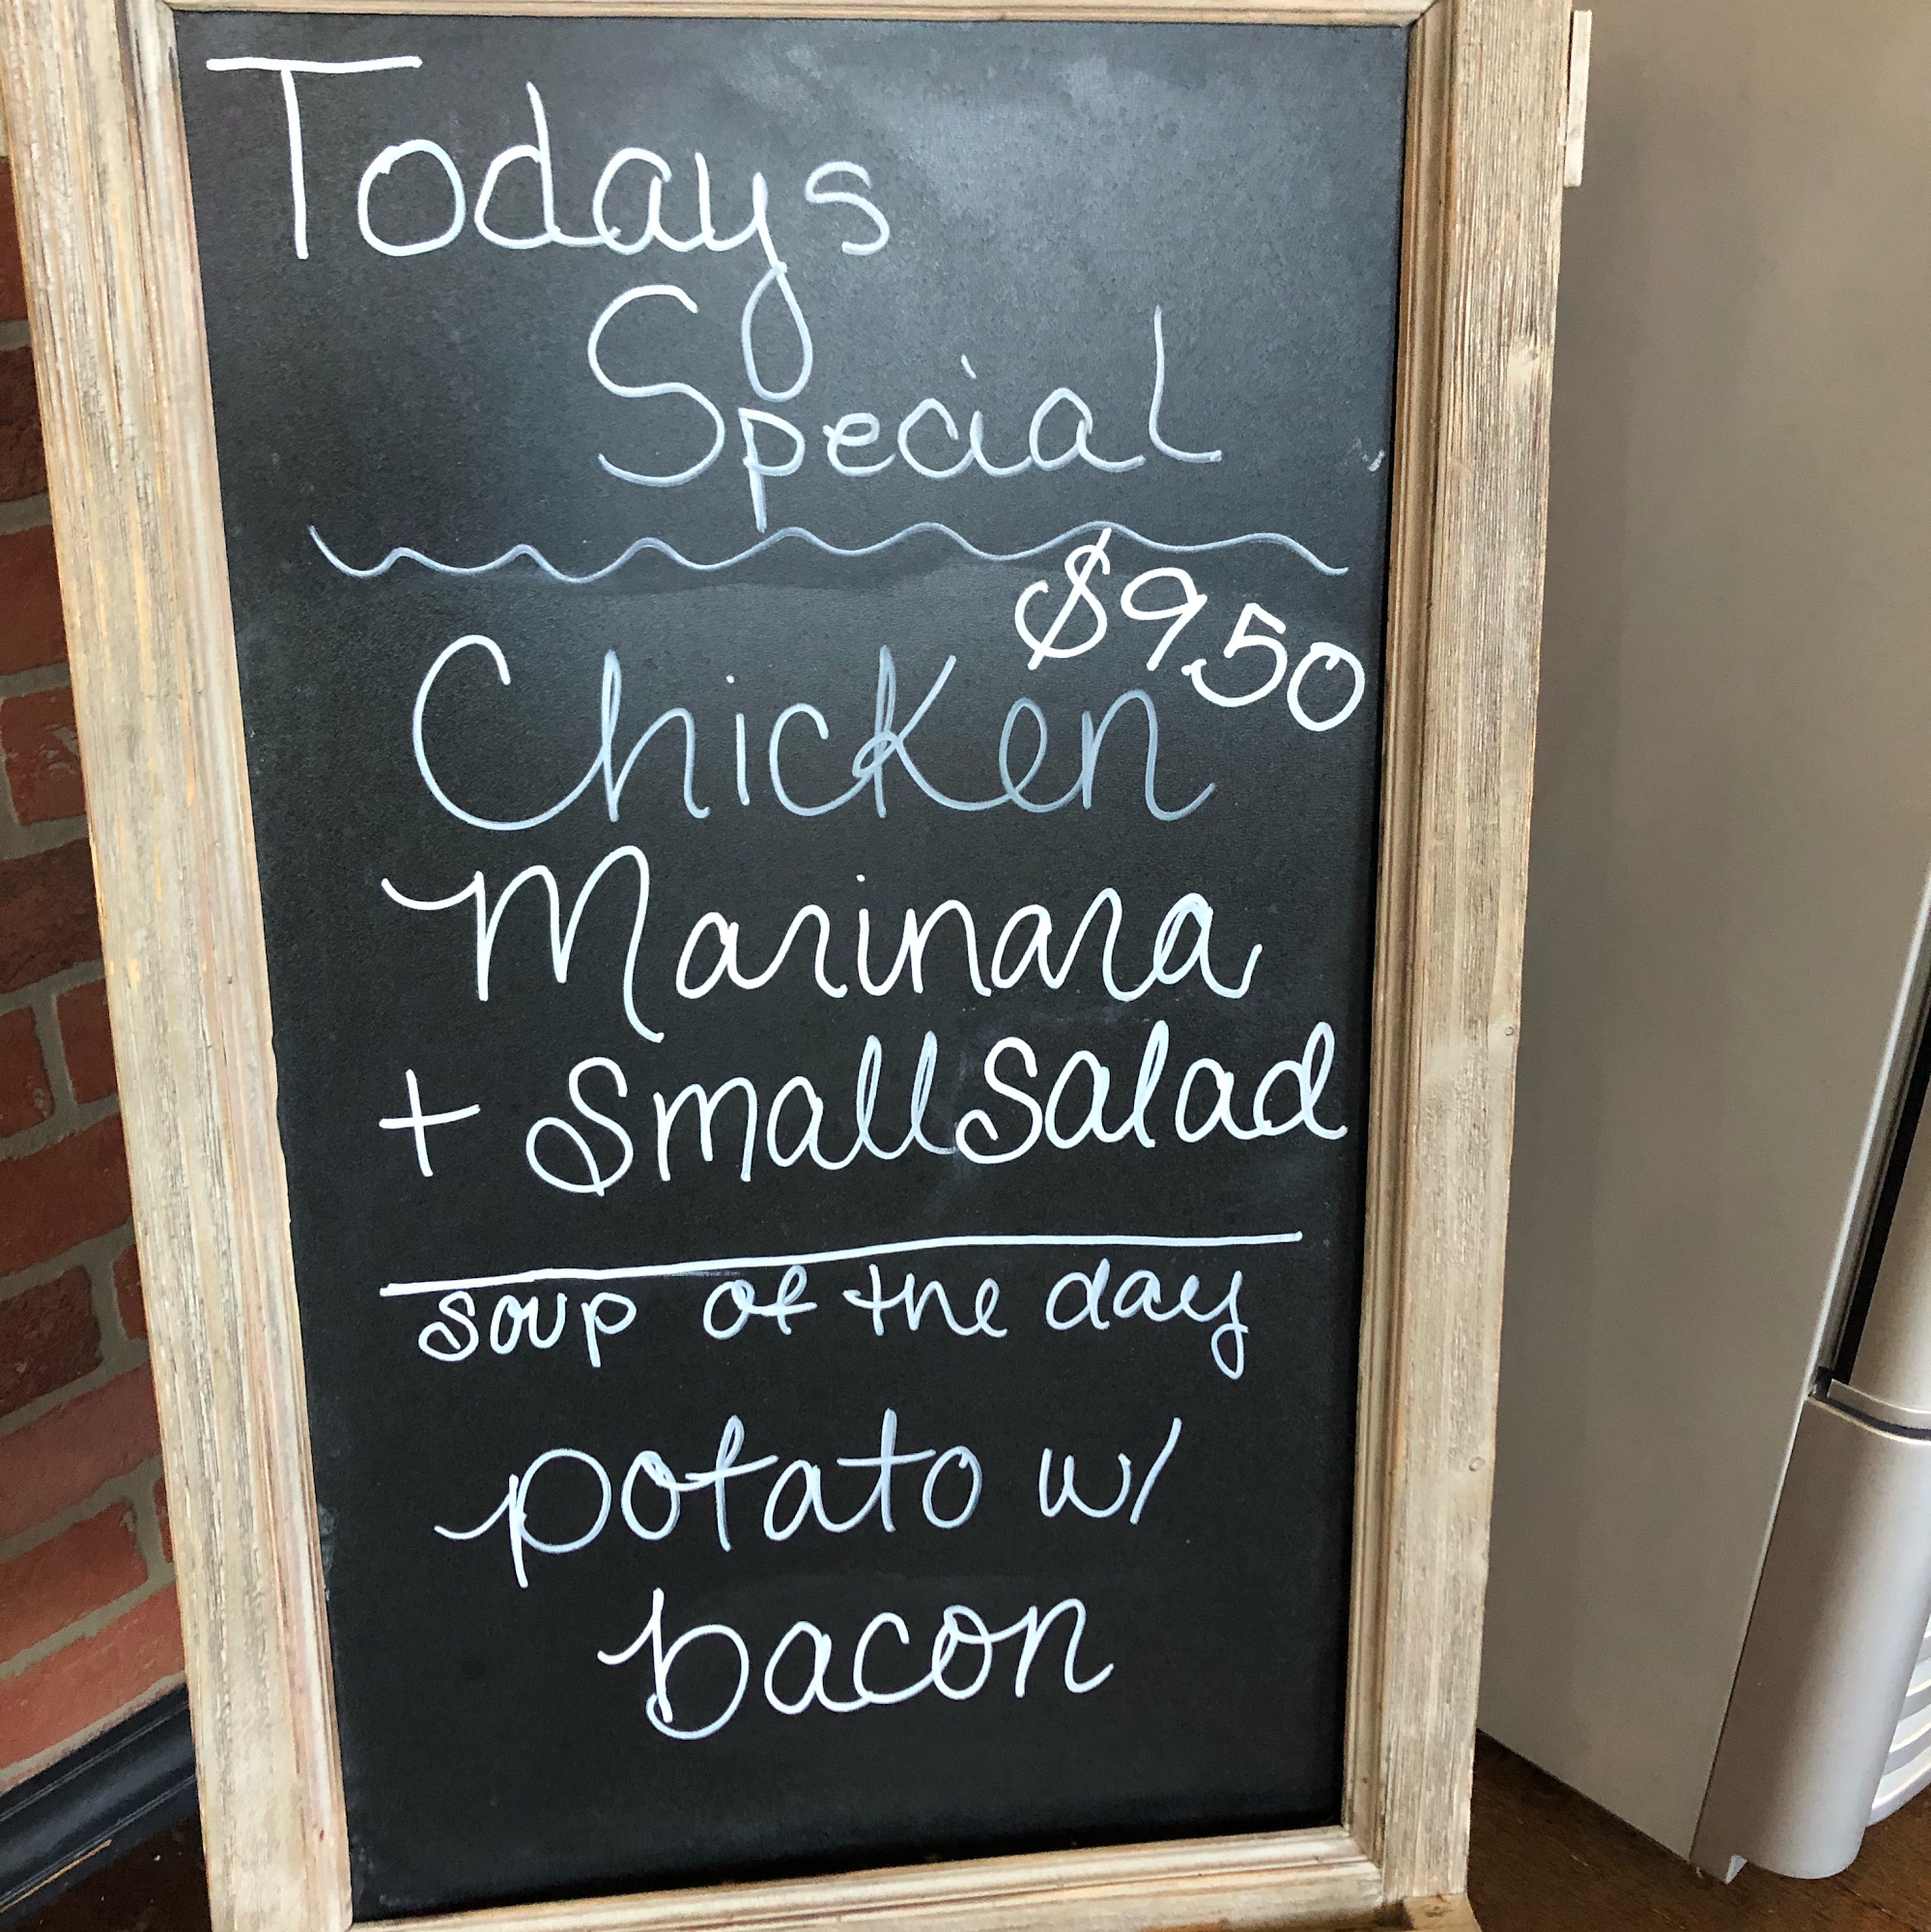 Todays
Special
$9.50
Chicken
Marinara
+ Small Salad
soup of the day
potato w/
bacon